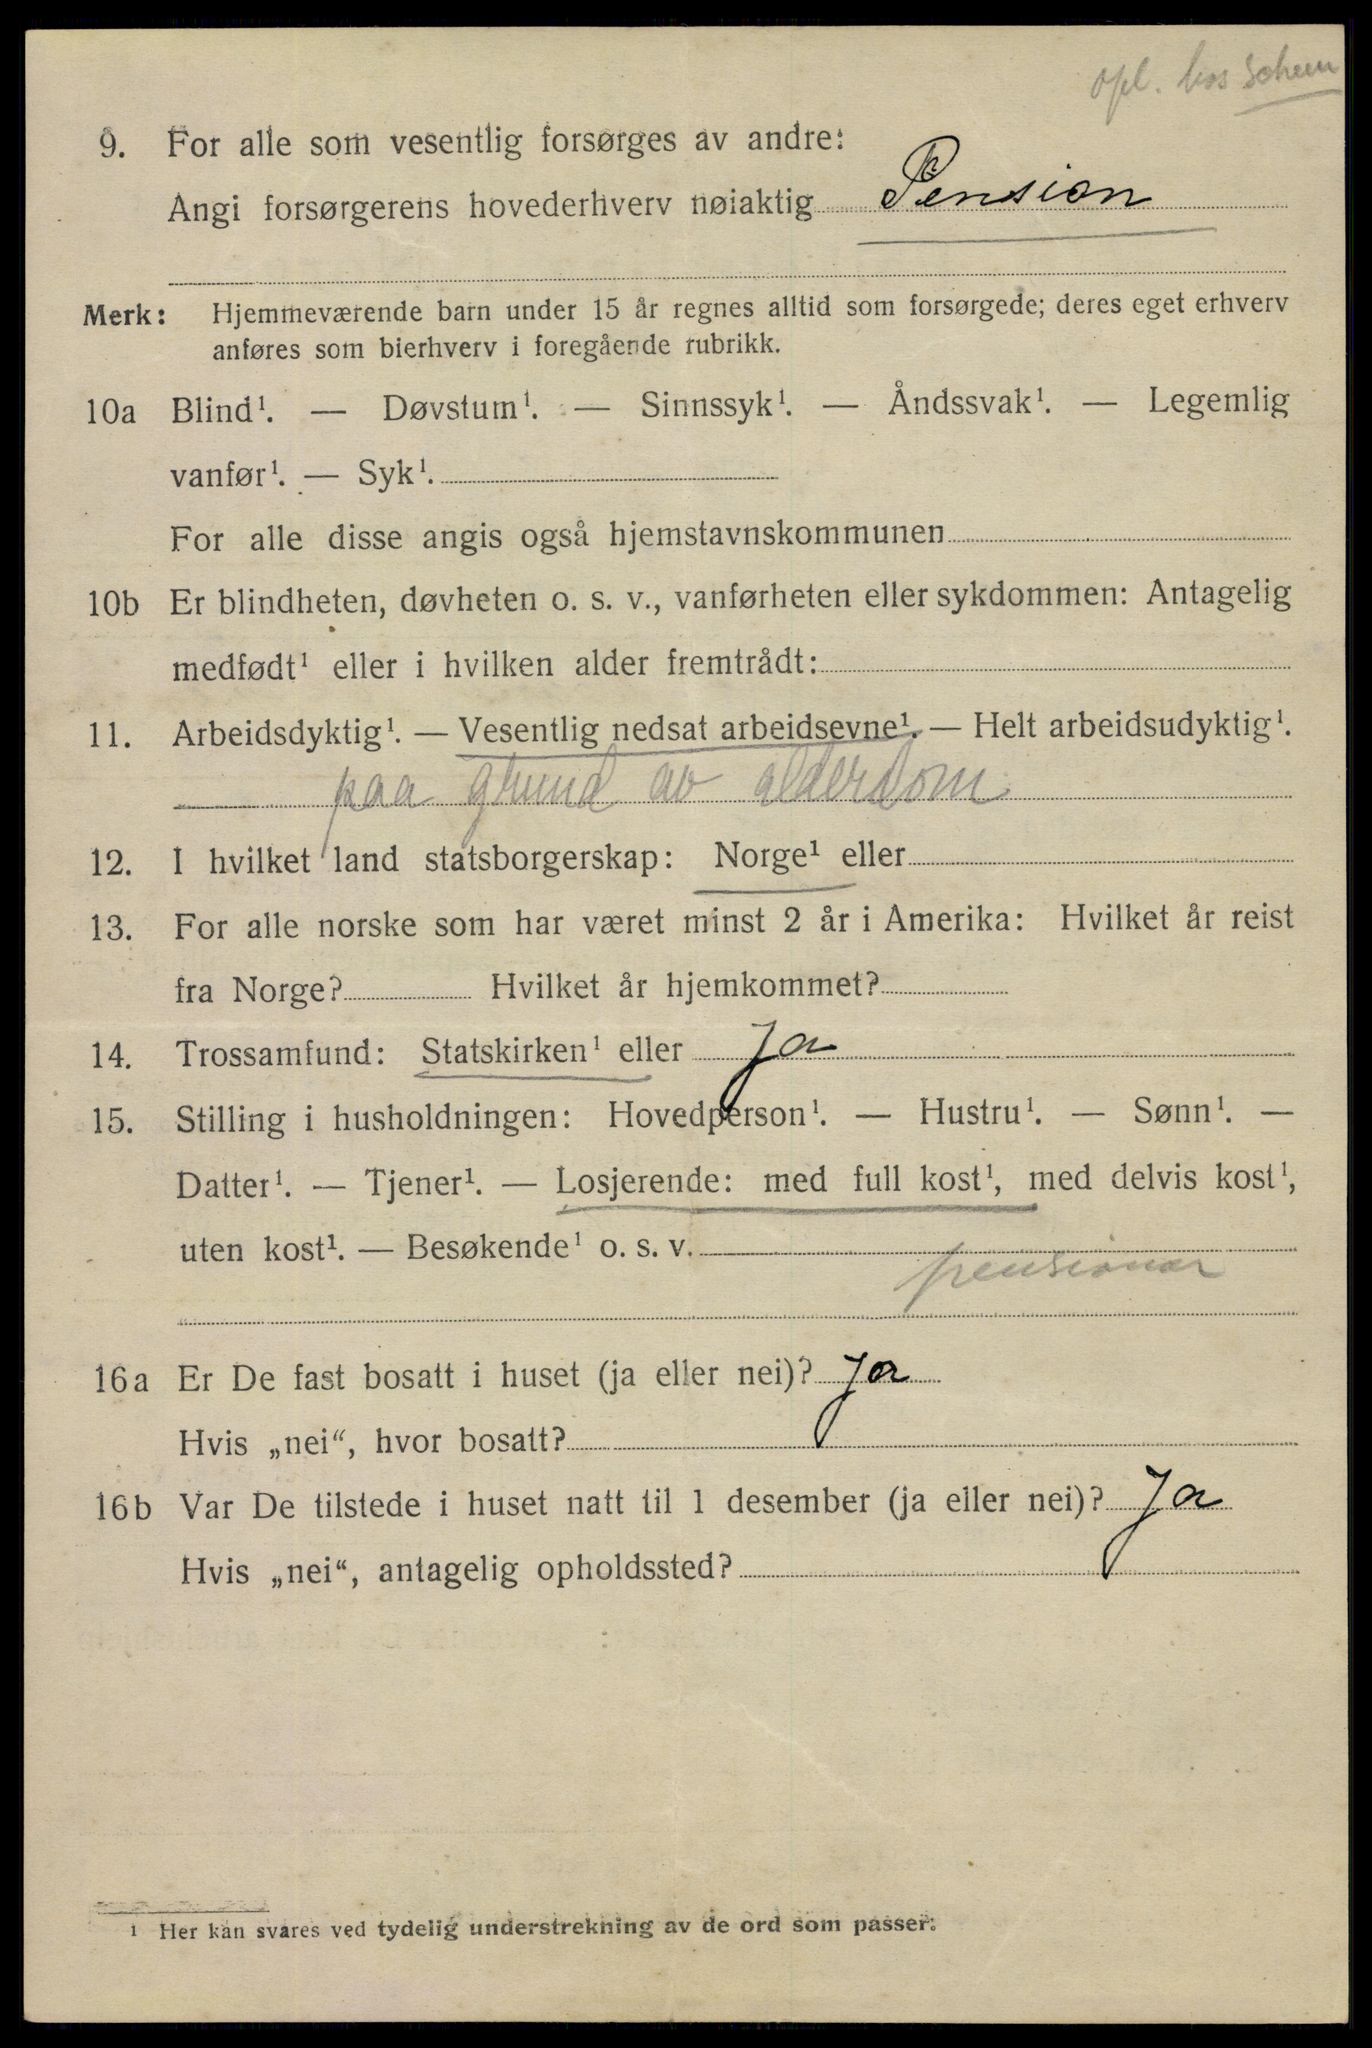 opl. hos Schem
9. For alle som vesentlig forsørges av andre:
Angi forsørgerens hovederhverv nøiaktig Pension
Merk: Hjemmeværende barn under 15 år regnes alltid som forsørgede; deres eget erhverv
anføres som bierhverv i foregående rubrikk.
10a Blind¹. — Døvstum¹. — Sinnssyk¹. — Åndssvak¹. — Legemlig
vanfør¹. — Syk¹.
For alle disse angis også hjemstavnskommunen
10b Er blindheten, døvheten o. s. v., vanførheten eller sykdommen: Antagelig
medfødt¹ eller i hvilken alder fremtrådt:
11. Arbeidsdyktig¹. — Vesentlig nedsat arbeidsevne¹. — Helt arbeidsudyktig¹.
paa grund av alderdom
12. I hvilket land statsborgerskap: Norge¹ eller
13. For alle norske som har været minst 2 år i Amerika: Hvilket år reist
fra Norge? Hvilket år hjemkommet?
14. Trossamfund: Statskirken¹ eller Ja
15. Stilling i husholdningen: Hovedperson¹. — Hustru¹. — Sønn¹. —
Datter¹. — Tjener¹. — Losjerende: med full kost¹, med delvis kost¹,
uten kost¹. — Besøkende¹ o. s. v.
pensionær
16a Er De fast bosatt i huset (ja eller nei)? Ja
Hvis „nei“, hvor bosatt?
16b Var De tilstede i huset natt til 1 desember (ja eller nei)? Ja
Hvis „nei“, antagelig opholdssted?
¹ Her kan svares ved tydelig understrekning av de ord som passer.